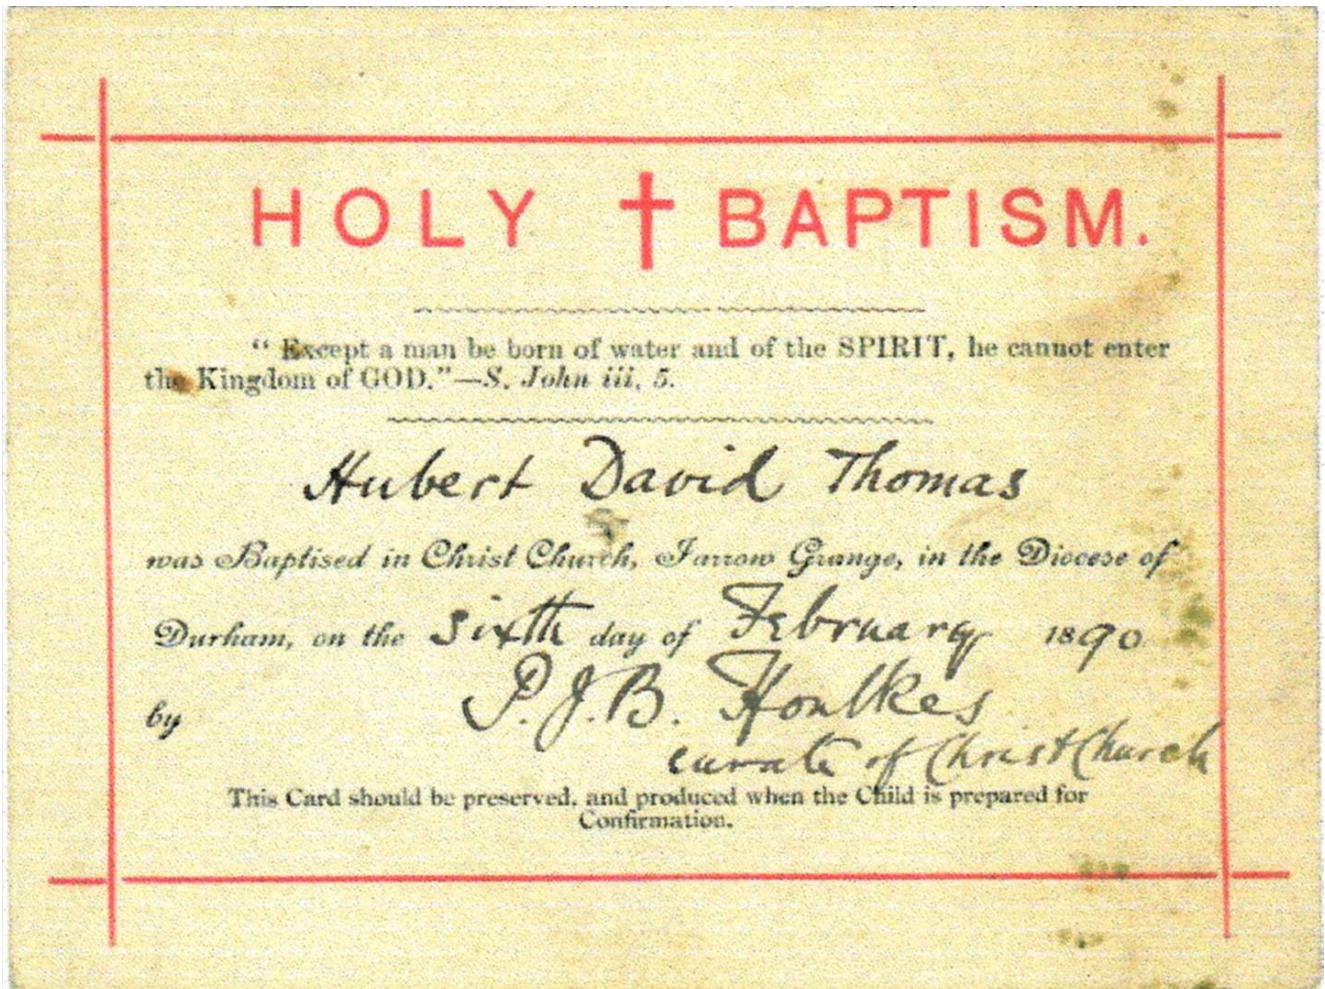 HOLY † BAPTISM.
“ Except a man be born of water and of the SPIRIT, he cannot enter
the Kingdom of GOD.”—S. John iii, 5.
Hubert David Thomas
was Baptised in Christ Church, Jarrow Grange, in the Diocese of
Durham, on the sixth day of February 1890
by P.J.B. Houlkes
curate of Christ Church
This Card should be preserved, and produced when the Child is prepared for
Confirmation.